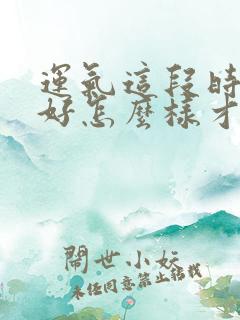 運氣這段時
好怎麼樣才
鬧世小妖
未经同意禁止转载